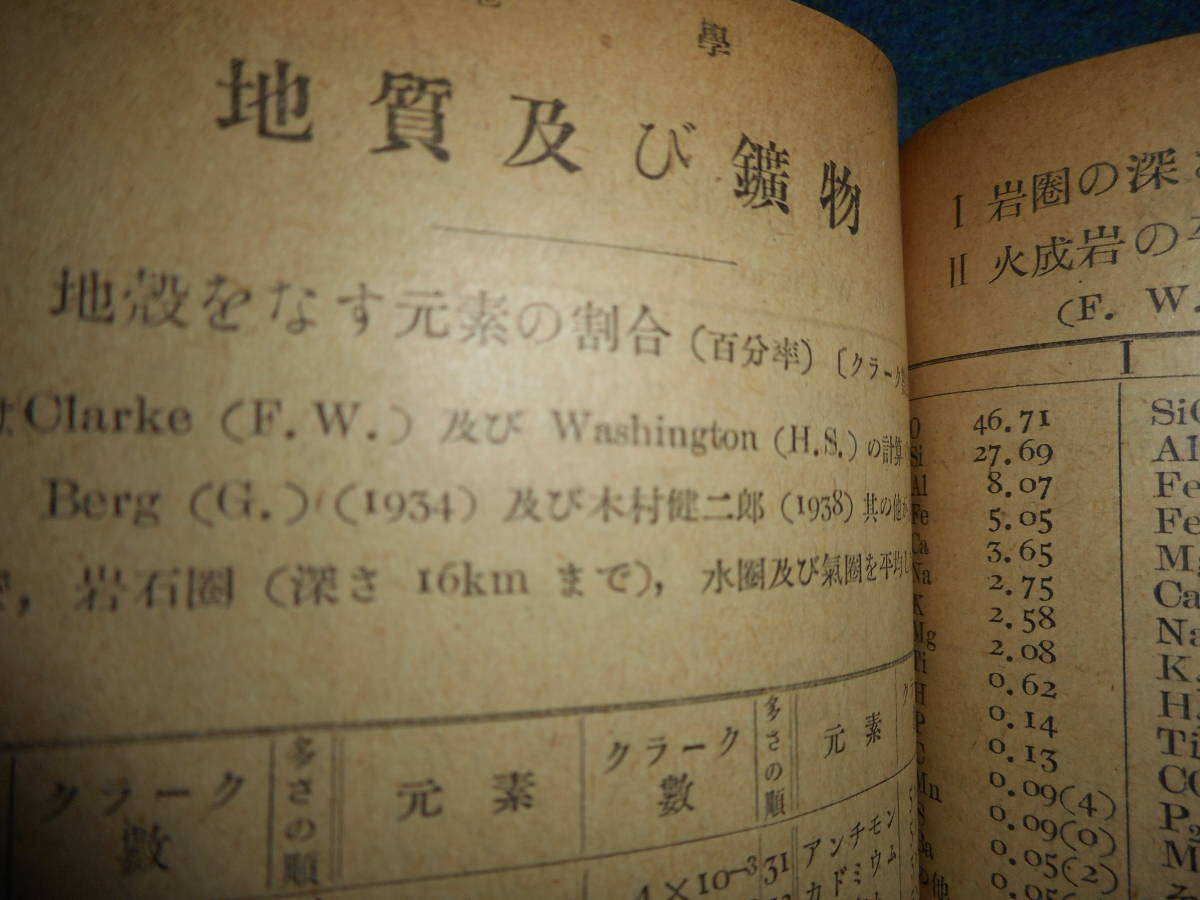 學
地質及び鑛物
地殼をなす元素の割合 (百分率) 〔クラーク
Clarke (F.W.) 及び Washington (H.S.) の計算
Berg (G.) (1934) 及び木村健二郎 (1938) 其の他
岩石圈 (深さ 16km まで), 水圈及び氣圈を平均し
クラーク數
多さの順
元素
クラーク數
多さの順
元素
4×10⁻³ 31 アンチモン
カドミウム
I 岩圈の深さ
II 火成岩の
(F. W.
I
O 46.71 SiO
Si 27.69 Al
Al 8.07 Fe
Fe 5.05 Fe
Ca 3.65 Mg
Na 2.75 Ca
K 2.58 Na
Mg 2.08 K
Ti 0.62 H
H 0.14 Ti
P 0.13 CO
C 0.09(4) P₂
Mn 0.09(0) M
S 0.05(2)
Ba 0.05
他